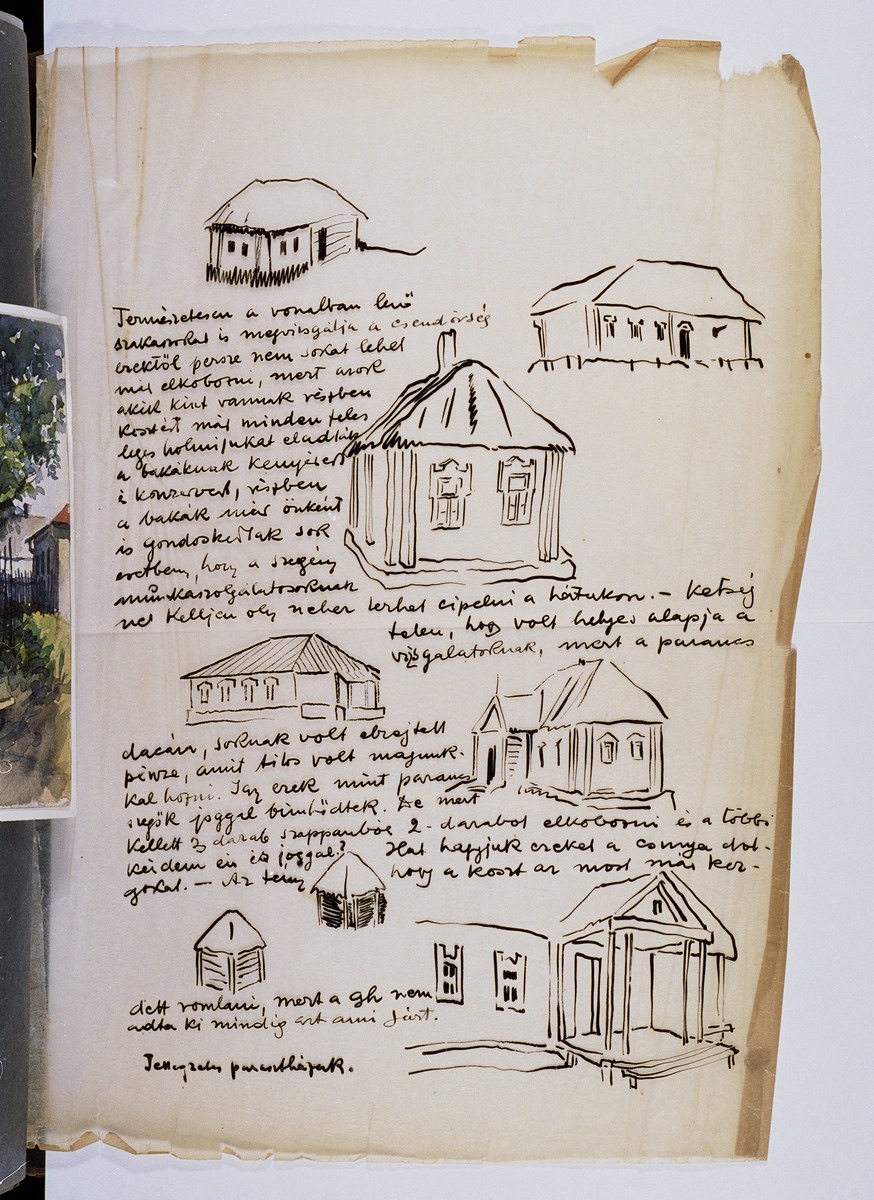 Természetesen a vonalban levő
szakaszokat is megvizsgálja a csendőrség
ezektől persze nem sokat lehet
már elkobozni, mert azok
akik kint vannak részben
kosztért már minden feles
leges holmijukat eladták
a bakáknak kenyérért
s konzervert, részben
a bakák már önként
is gondoskodtak sok
esetben, hogy a szegény
munkaszolgálatosoknak
ne kelljen oly neher terhet cipelni a hátukon. – Kétség
telen, hogy volt helyes alapja a
vizsgálatoknak, mert a parancs
dacára, soknak volt elrejtett
pénze, amit tilos volt magunk-
kal hozni. Igy ezek mint parancs
szegők joggal bűnhődtek. De mert
kellett 3 darab szappanból 2-darabot elkobozni és a többi
kérdem én is joggal? Hat hagyjuk ezeket a csunya dol-
gokat. – Az tény hogy a koszt az most már kez-
dett romlani, mert a gh nem
adta ki mindig azt ami járt.
Jellegzetes parasztházak.